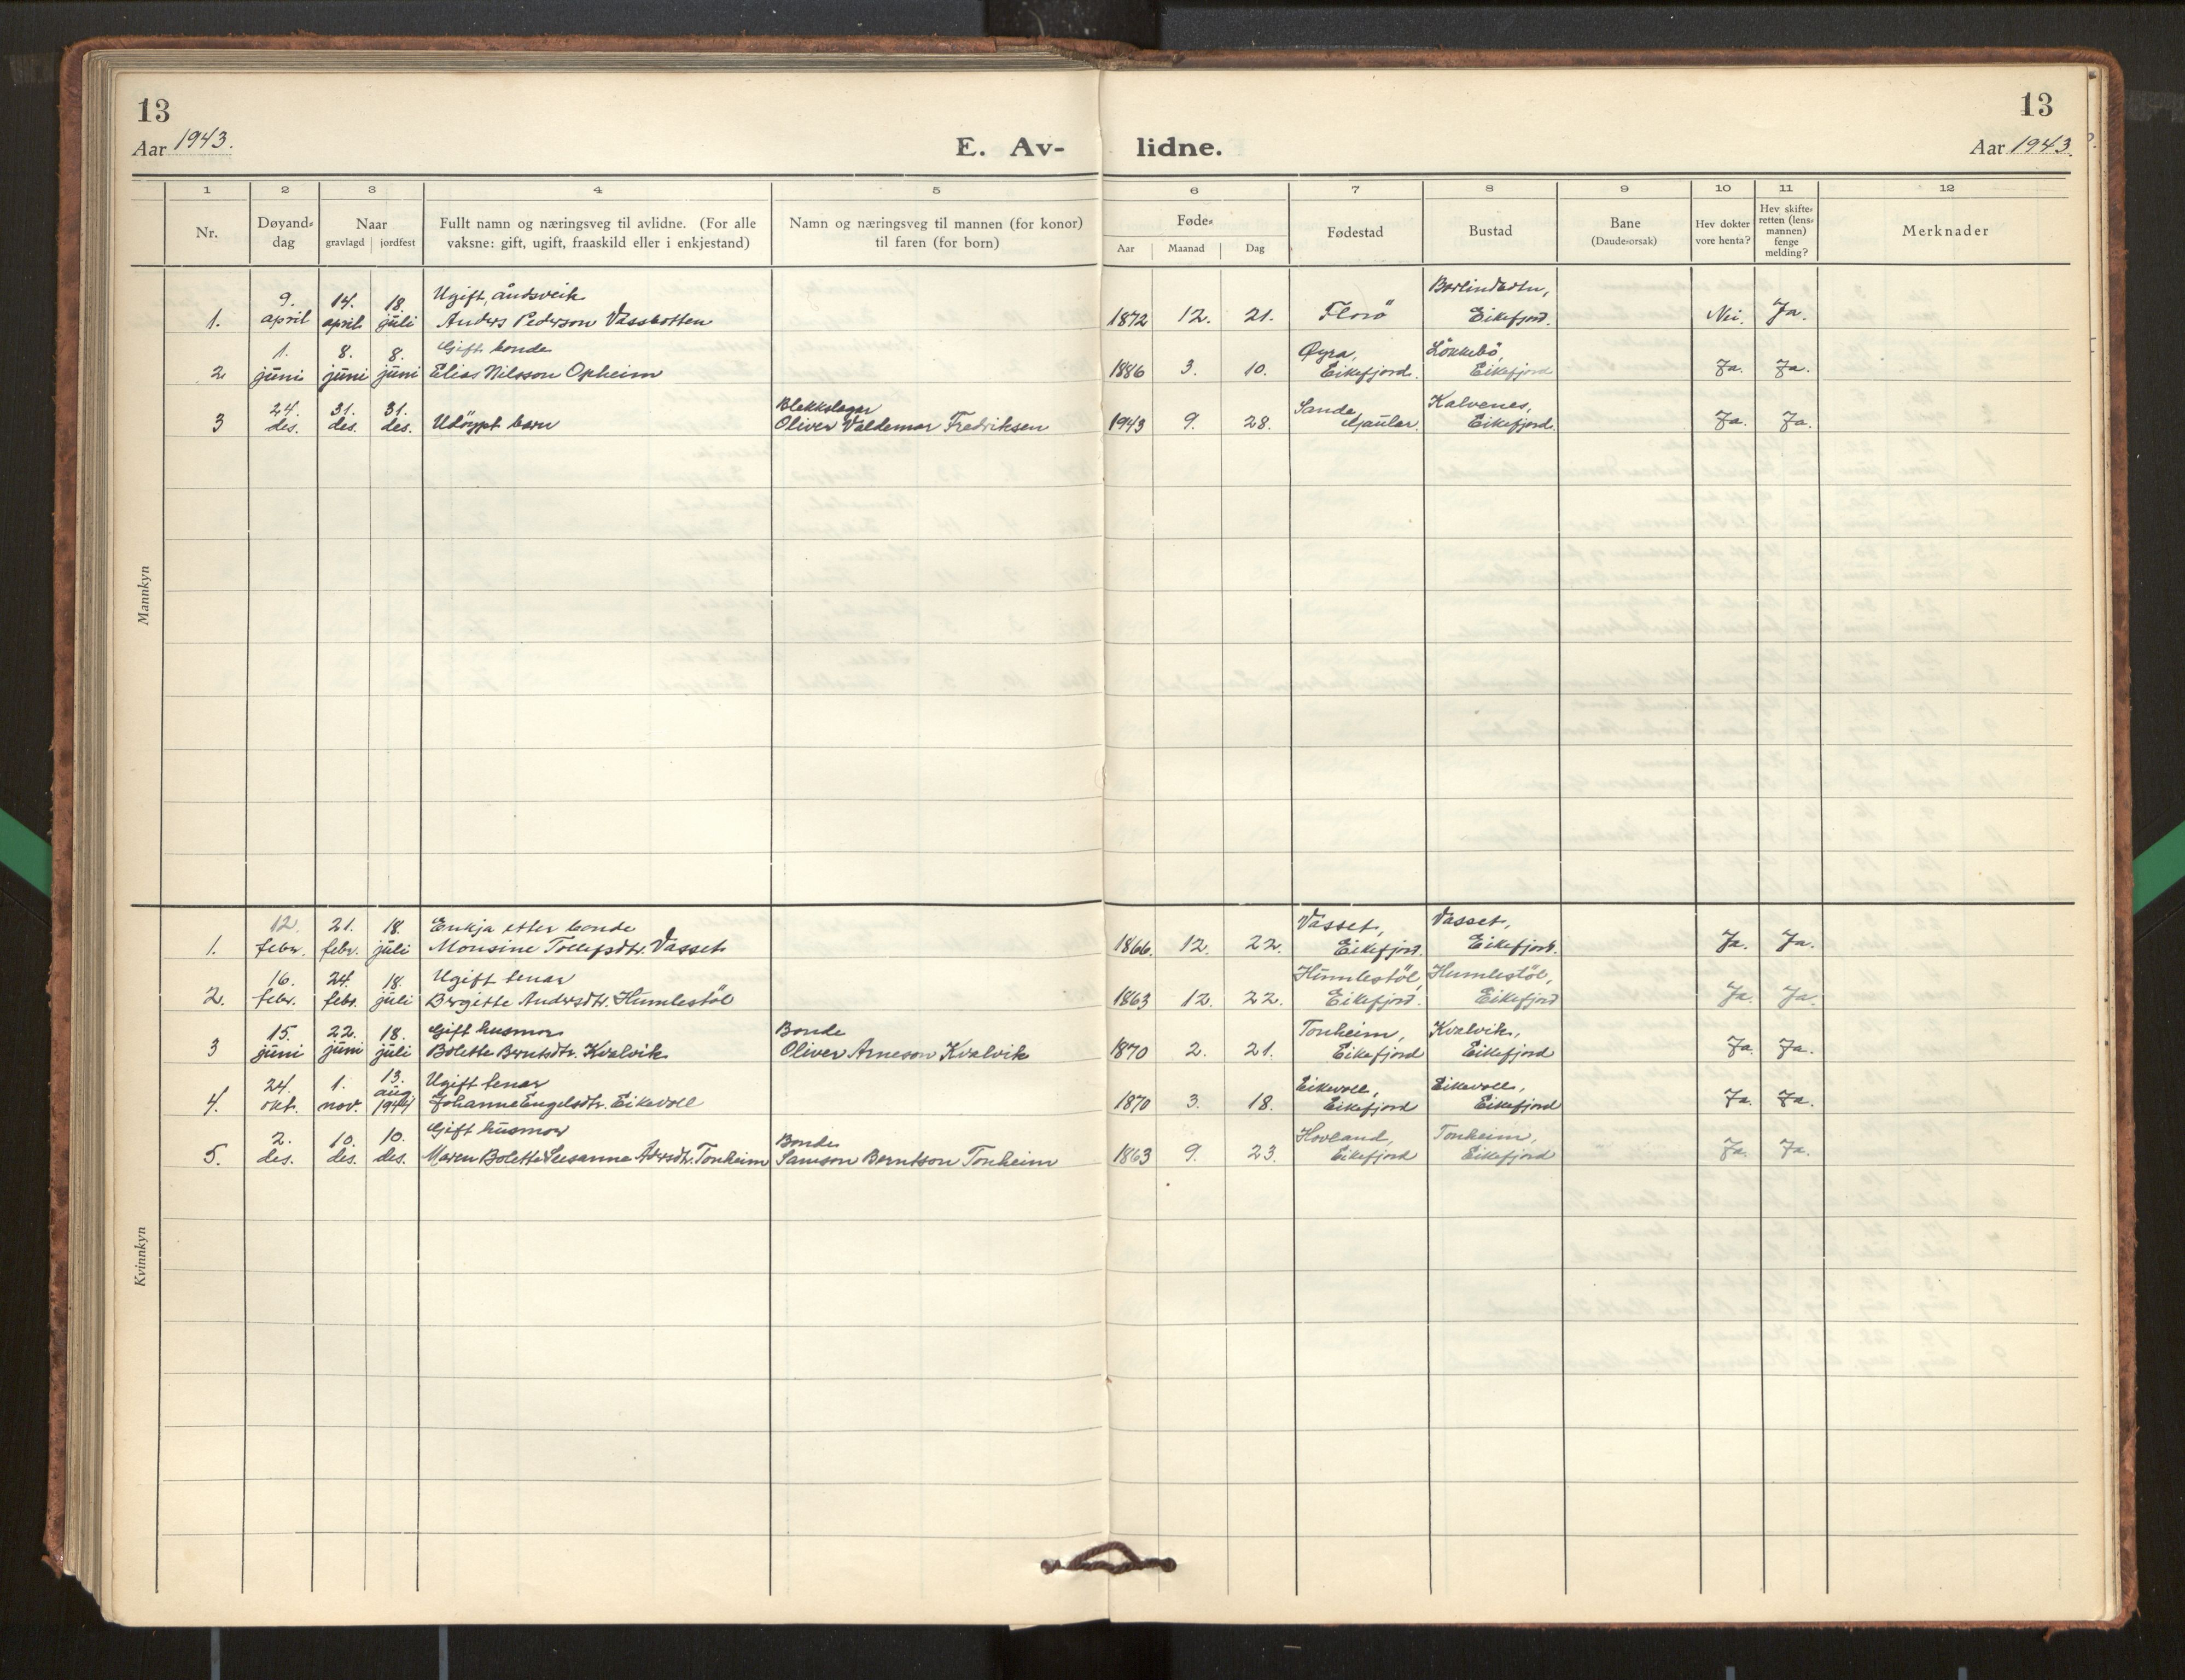 13
Aar 1943.
E. Av-
lidne.
13
Aar 1943.
1 2 3 4 5 6 7 8 9 10 11 12
Nr.
Døyand-
dag
Naar
gravlagd jordfest
Fullt namn og næringsveg til avlidne. (For alle
vaksne: gift, ugift, fraaskild eller i enkjestand)
Namn og næringsveg til mannen (for konor)
til faren (for born)
Føde-
Aar Maanad Dag
Fødestad
Bustad
Bane
(Daude-orsak)
Hev dokter
vore henta?
Hev skifte-
retten (lens-
mannen)
fenge
melding?
Merknader
Mannkyn
9. 14. 18. Ugift, åndsveik
1. april april juli Anders Pederson Vassbotten 1872 12. 21. Florö Eikefjord. Nei. Ja.
1. 8. 8. Gift bonde Øyra, Løkkebö,
2 juni juni juni Elias Nilsson Opheim 1886 3. 10. Eikefjord. Eikefjord Ja. Ja.
24. 31. 31. Blekkslagar Sande, Kalvenes,
3 des. des. des. Udöypt barn Oliver Valdemar Fredriksen 1943 9. 28. Gaular. Eikefjord. Ja. Ja.
Kvinnkyn
12. 21. 18. Enkja etter bonde Vasset, Vasset,
1. febr. febr. juli Monsine Tollefsdtr. Vasset 1866. 12. 22. Eikefjord. Eikefjord. Ja. Ja.
16. 24. 18. Ugift tenar Humlestöl, Humlestöl,
2. febr. febr. juli Bergitte Andersdtr. Humlestöl 1863 12. 22. Eikefjord. Eikefjord Ja. Ja.
15. 22. 18. Gift husmor Bonde Tonheim, Kvalvik,
3 juni juni juli Bolette Berntsdtr. Kvalvik Oliver Arneson Kvalvik 1870 2. 21. Eikefjord Eikefjord Ja. Ja.
24. 1. 13. aug. Ugift tenar Eikevoll, Eikevoll,
4. okt. nov. 1944 Johanne Engelsdtr. Eikevoll 1870 3. 18. Eikefjord Eikefjord Ja. Ja.
2. 10. 10. Gift husmor Bonde Hovland, Tonheim,
5. des. des. des. Maren Bolette Susanne Tonheim Samson Berntson Tonheim 1863 9. 23. Eikefjord Eikefjord Ja. Ja.